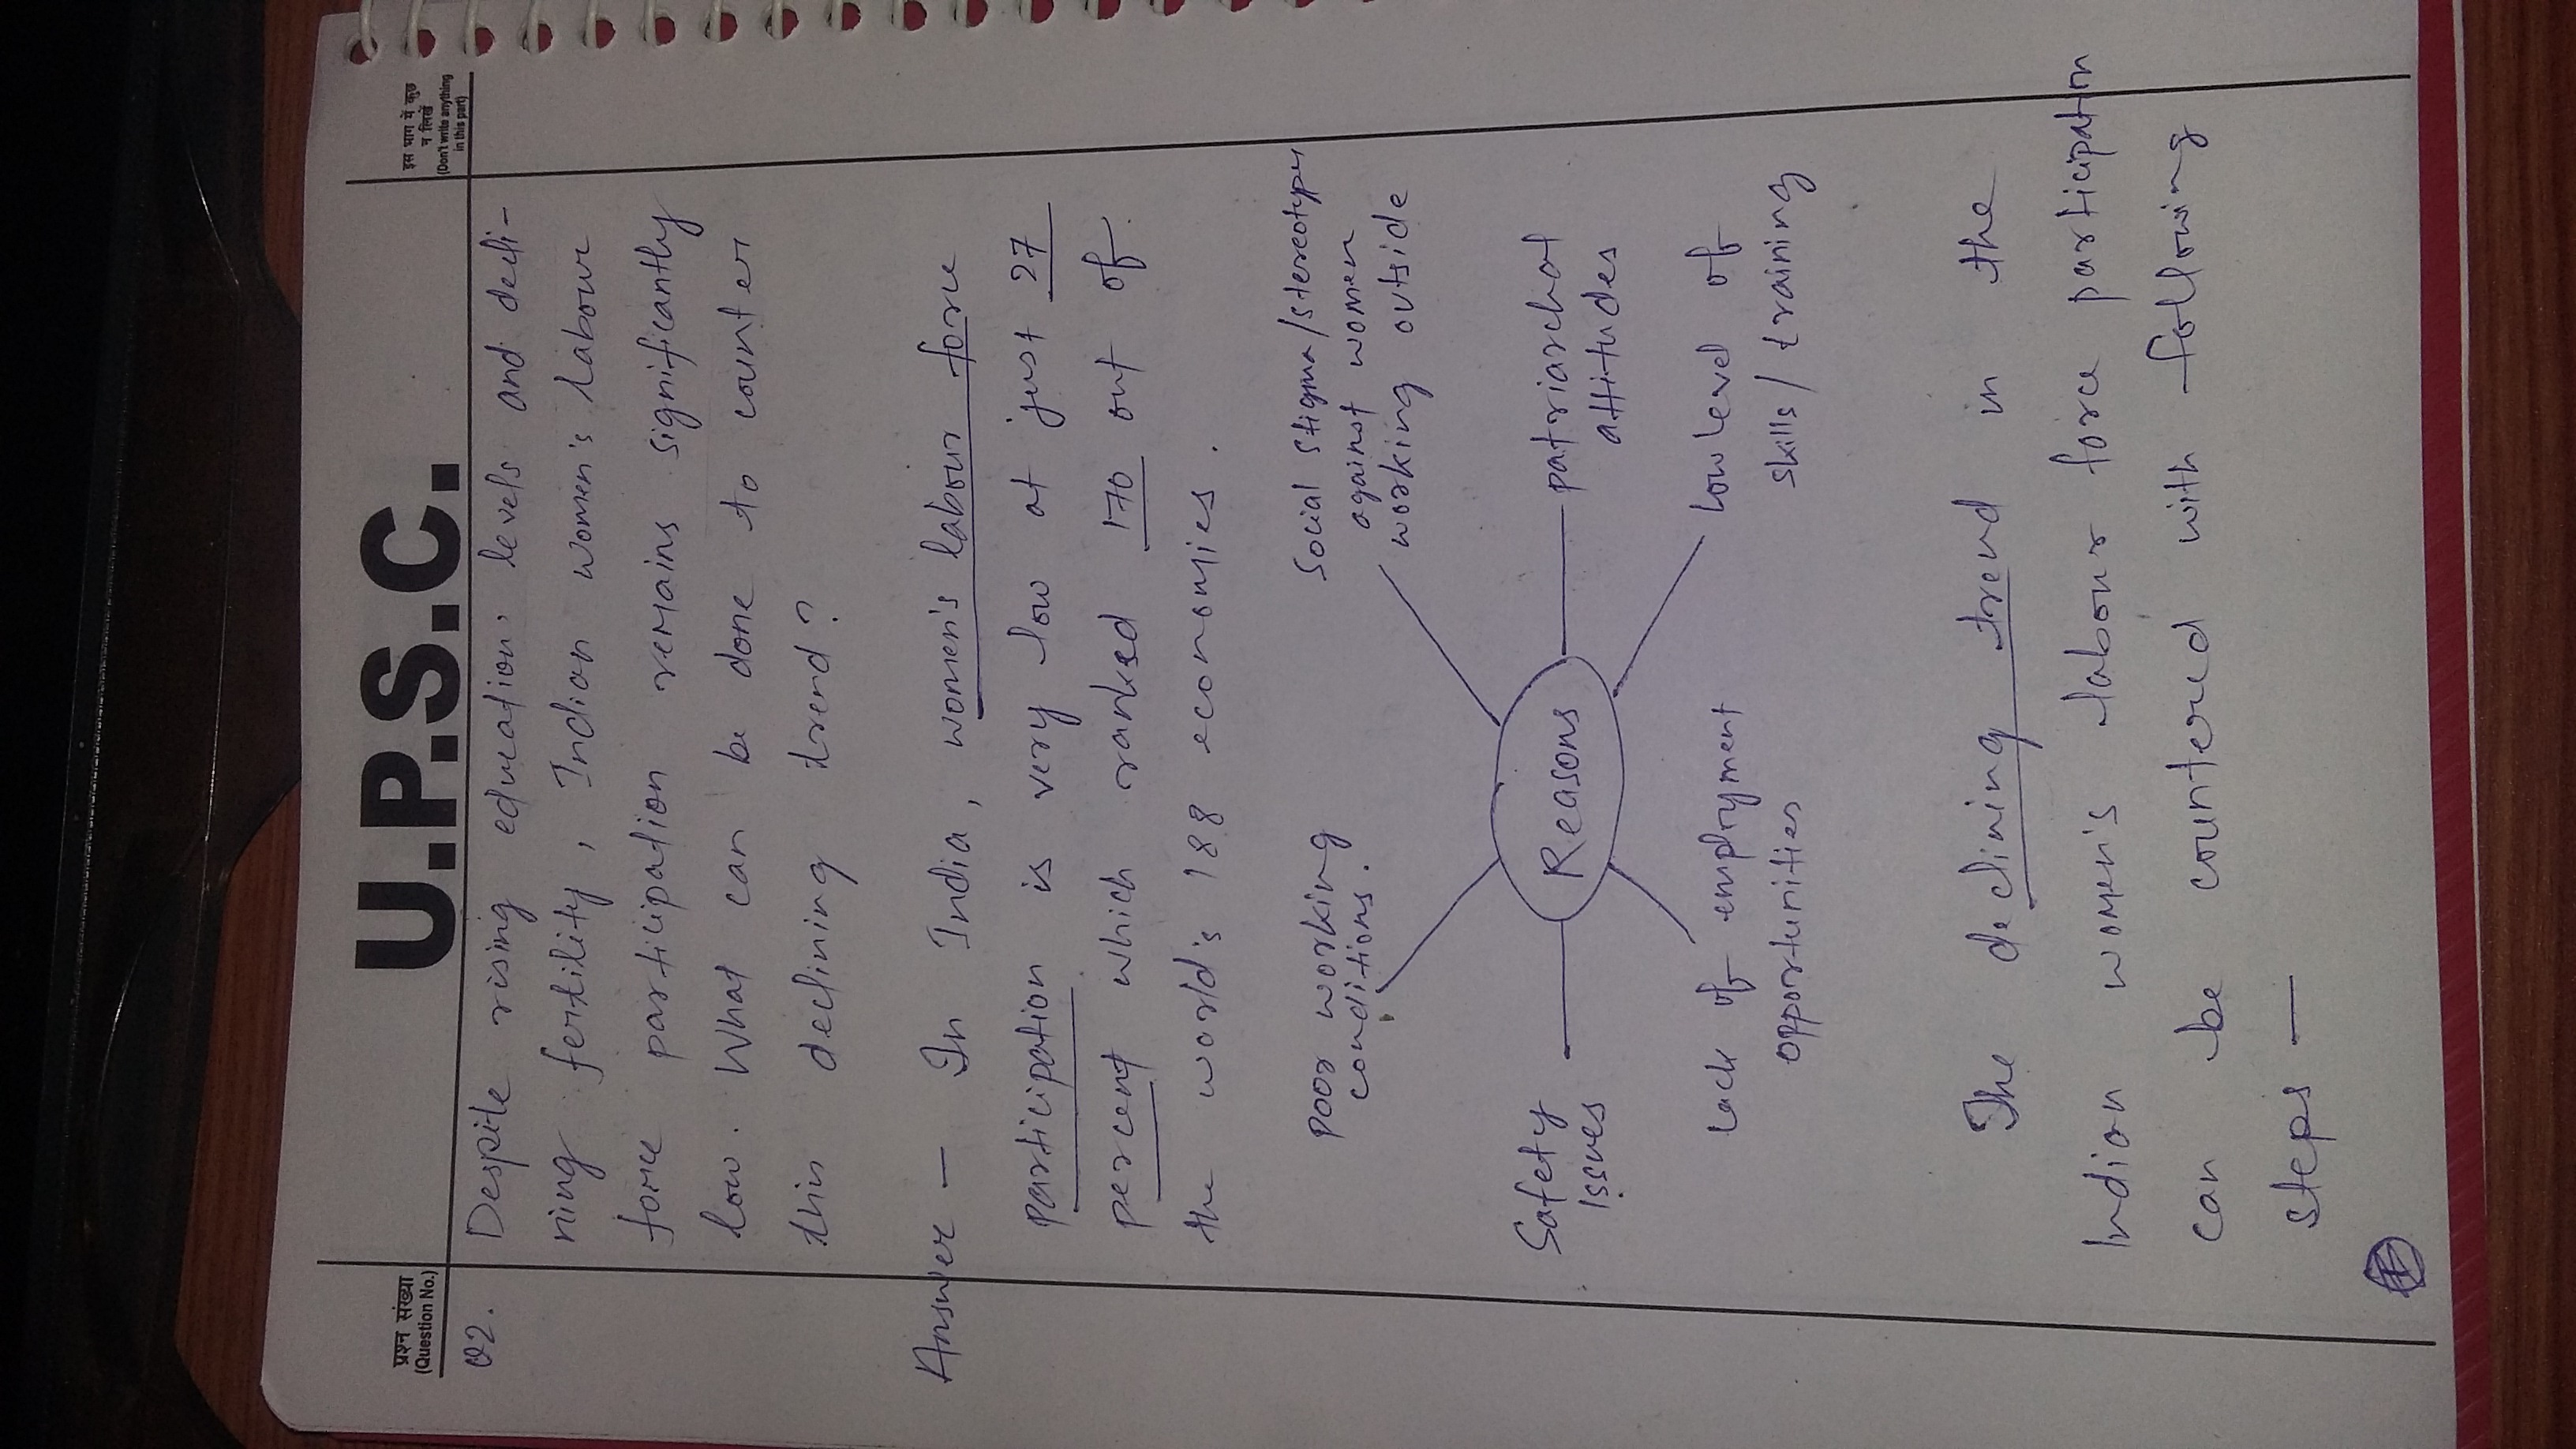 U.P.S.C.
प्रश्न संख्या
(Question No.)
इस भाग में कुछ
न लिखें
(Don't write anything
in this part)
Q2. Despite rising education levels and decli-
ning fertility, Indian women's labour
force participation remains significantly
low. What can be done to counter
this declining trend?
Answer — In India, women's labour force
participation is very low at just 27
percent which ranked 170 out of
the world's 188 economies.
Poor working
conditions.
Social stigma/stereotypes
against women
working outside
Safety
Issues
Reasons
patriarchal
attitudes
Lack of employment
opportunities
Low level of
skills/training
The declining trend in the
Indian women's labour force participation
can be countered with following
steps —